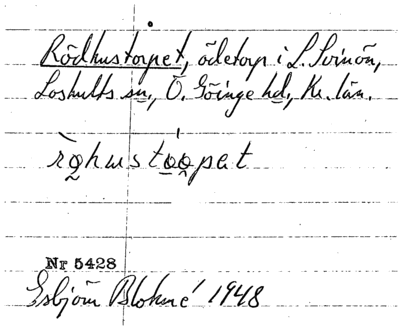 Rödhustorpet, ödetorp i L. Svinön,
Loshults sn., Ö. Göinge hd., Kr. län.
Nr 5428
Esbjörn 1948